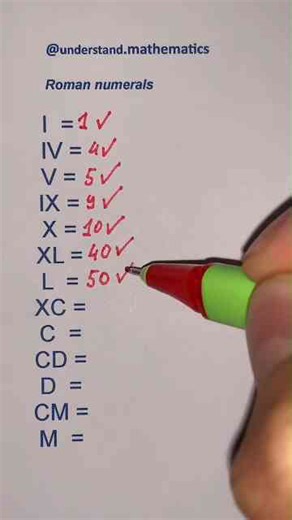 @understand.mathematics
Roman numerals
I = 1 ✓
IV = 4 ✓
V = 5 ✓
IX = 9 ✓
X = 10 ✓
XL = 40 ✓
L = 50 ✓
XC =
C =
CD =
D =
CM =
M =